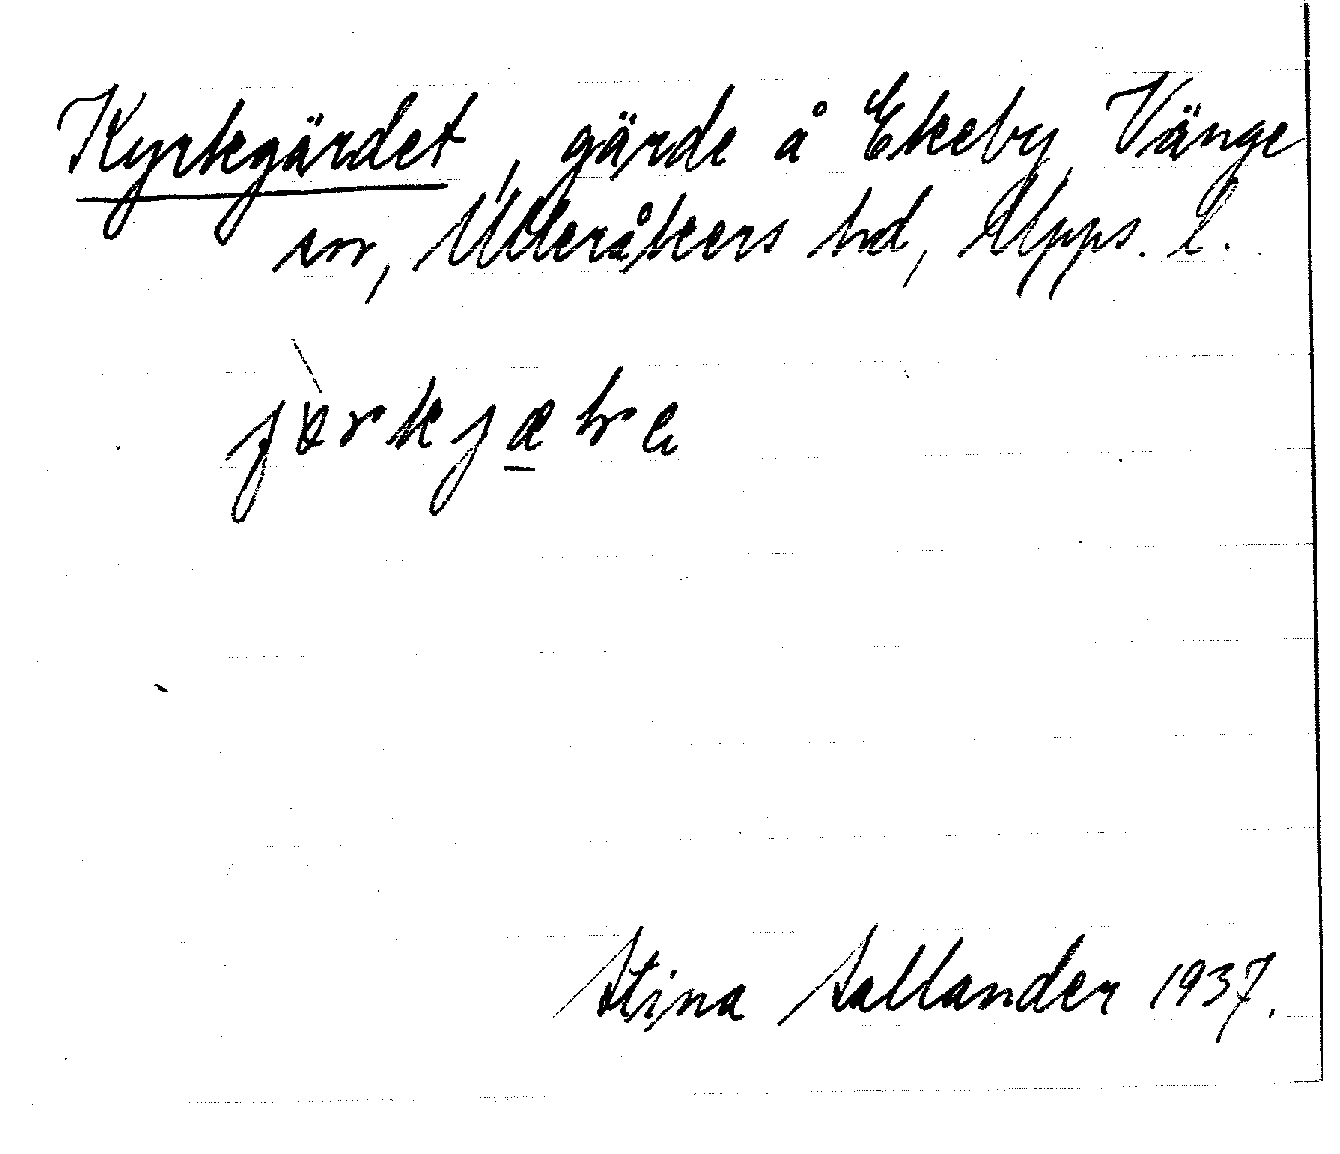 Kyrkgärdet, gärde å Ekeby, Vänge
sn, Ulleråkers hd, Upps. l.
Stina Sallander 1937.